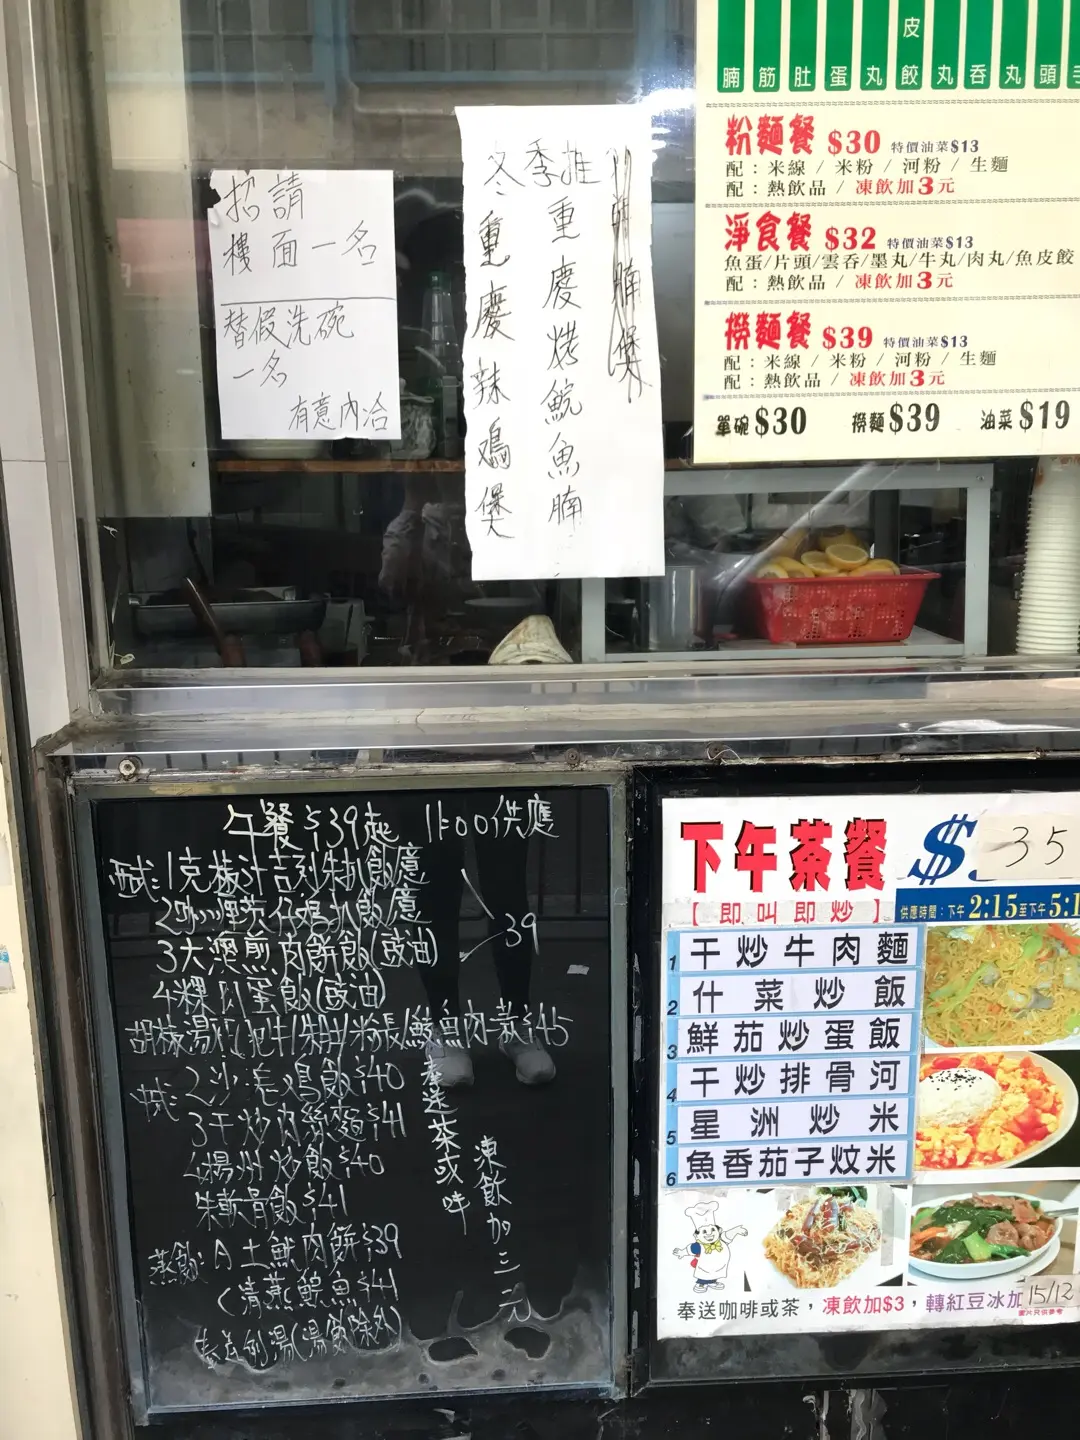 招請
樓面一名
替假洗碗
一名
有意內洽
冬季推
重慶烤鯇魚腩
重慶辣鳮煲
皮
腩 筋 肚 蛋 丸 餃 丸 吞 丸 頭
粉麵餐 $30 特價油菜$13
配：米線 / 米粉 / 河粉 / 生麵
配：熱飲品 / 凍飲加3元
淨食餐 $32 特價油菜$13
魚蛋/片頭/雲吞/墨丸/牛丸/肉丸/魚皮餃
配：熱飲品 / 凍飲加3元
撈麵餐 $39 特價油菜$13
配：米線 / 米粉 / 河粉 / 生麵
配：熱飲品 / 凍飲加3元
單碗$30 撈麵$39 油菜$19
午餐$39起 11:00供應
西式:1克椒汁吉列朱扒飯
2咖哩茨仔鳮扒飯
3大澳煎肉餅飯(豉油)
39
4粿肉蛋飯(豉油)
2沙爹鳮飯$40
3干炒肉絲麵$41
4楊州炒飯$40
朱軟骨飯$41
蒸飯: A土魷肉餅$39
清蒸鯇魚$41
奉送茶或啡
凍飲加三元
下午茶餐 $ 35
【即叫即炒】
供應時間：下午2:15至下午5:1
1 干炒牛肉麵
2 什菜炒飯
3 鮮茄炒蛋飯
4 干炒排骨河
5 星洲炒米
6 魚香茄子炆米
奉送咖啡或茶，凍飲加$3，轉紅豆冰加
15/12
圖片只供參考